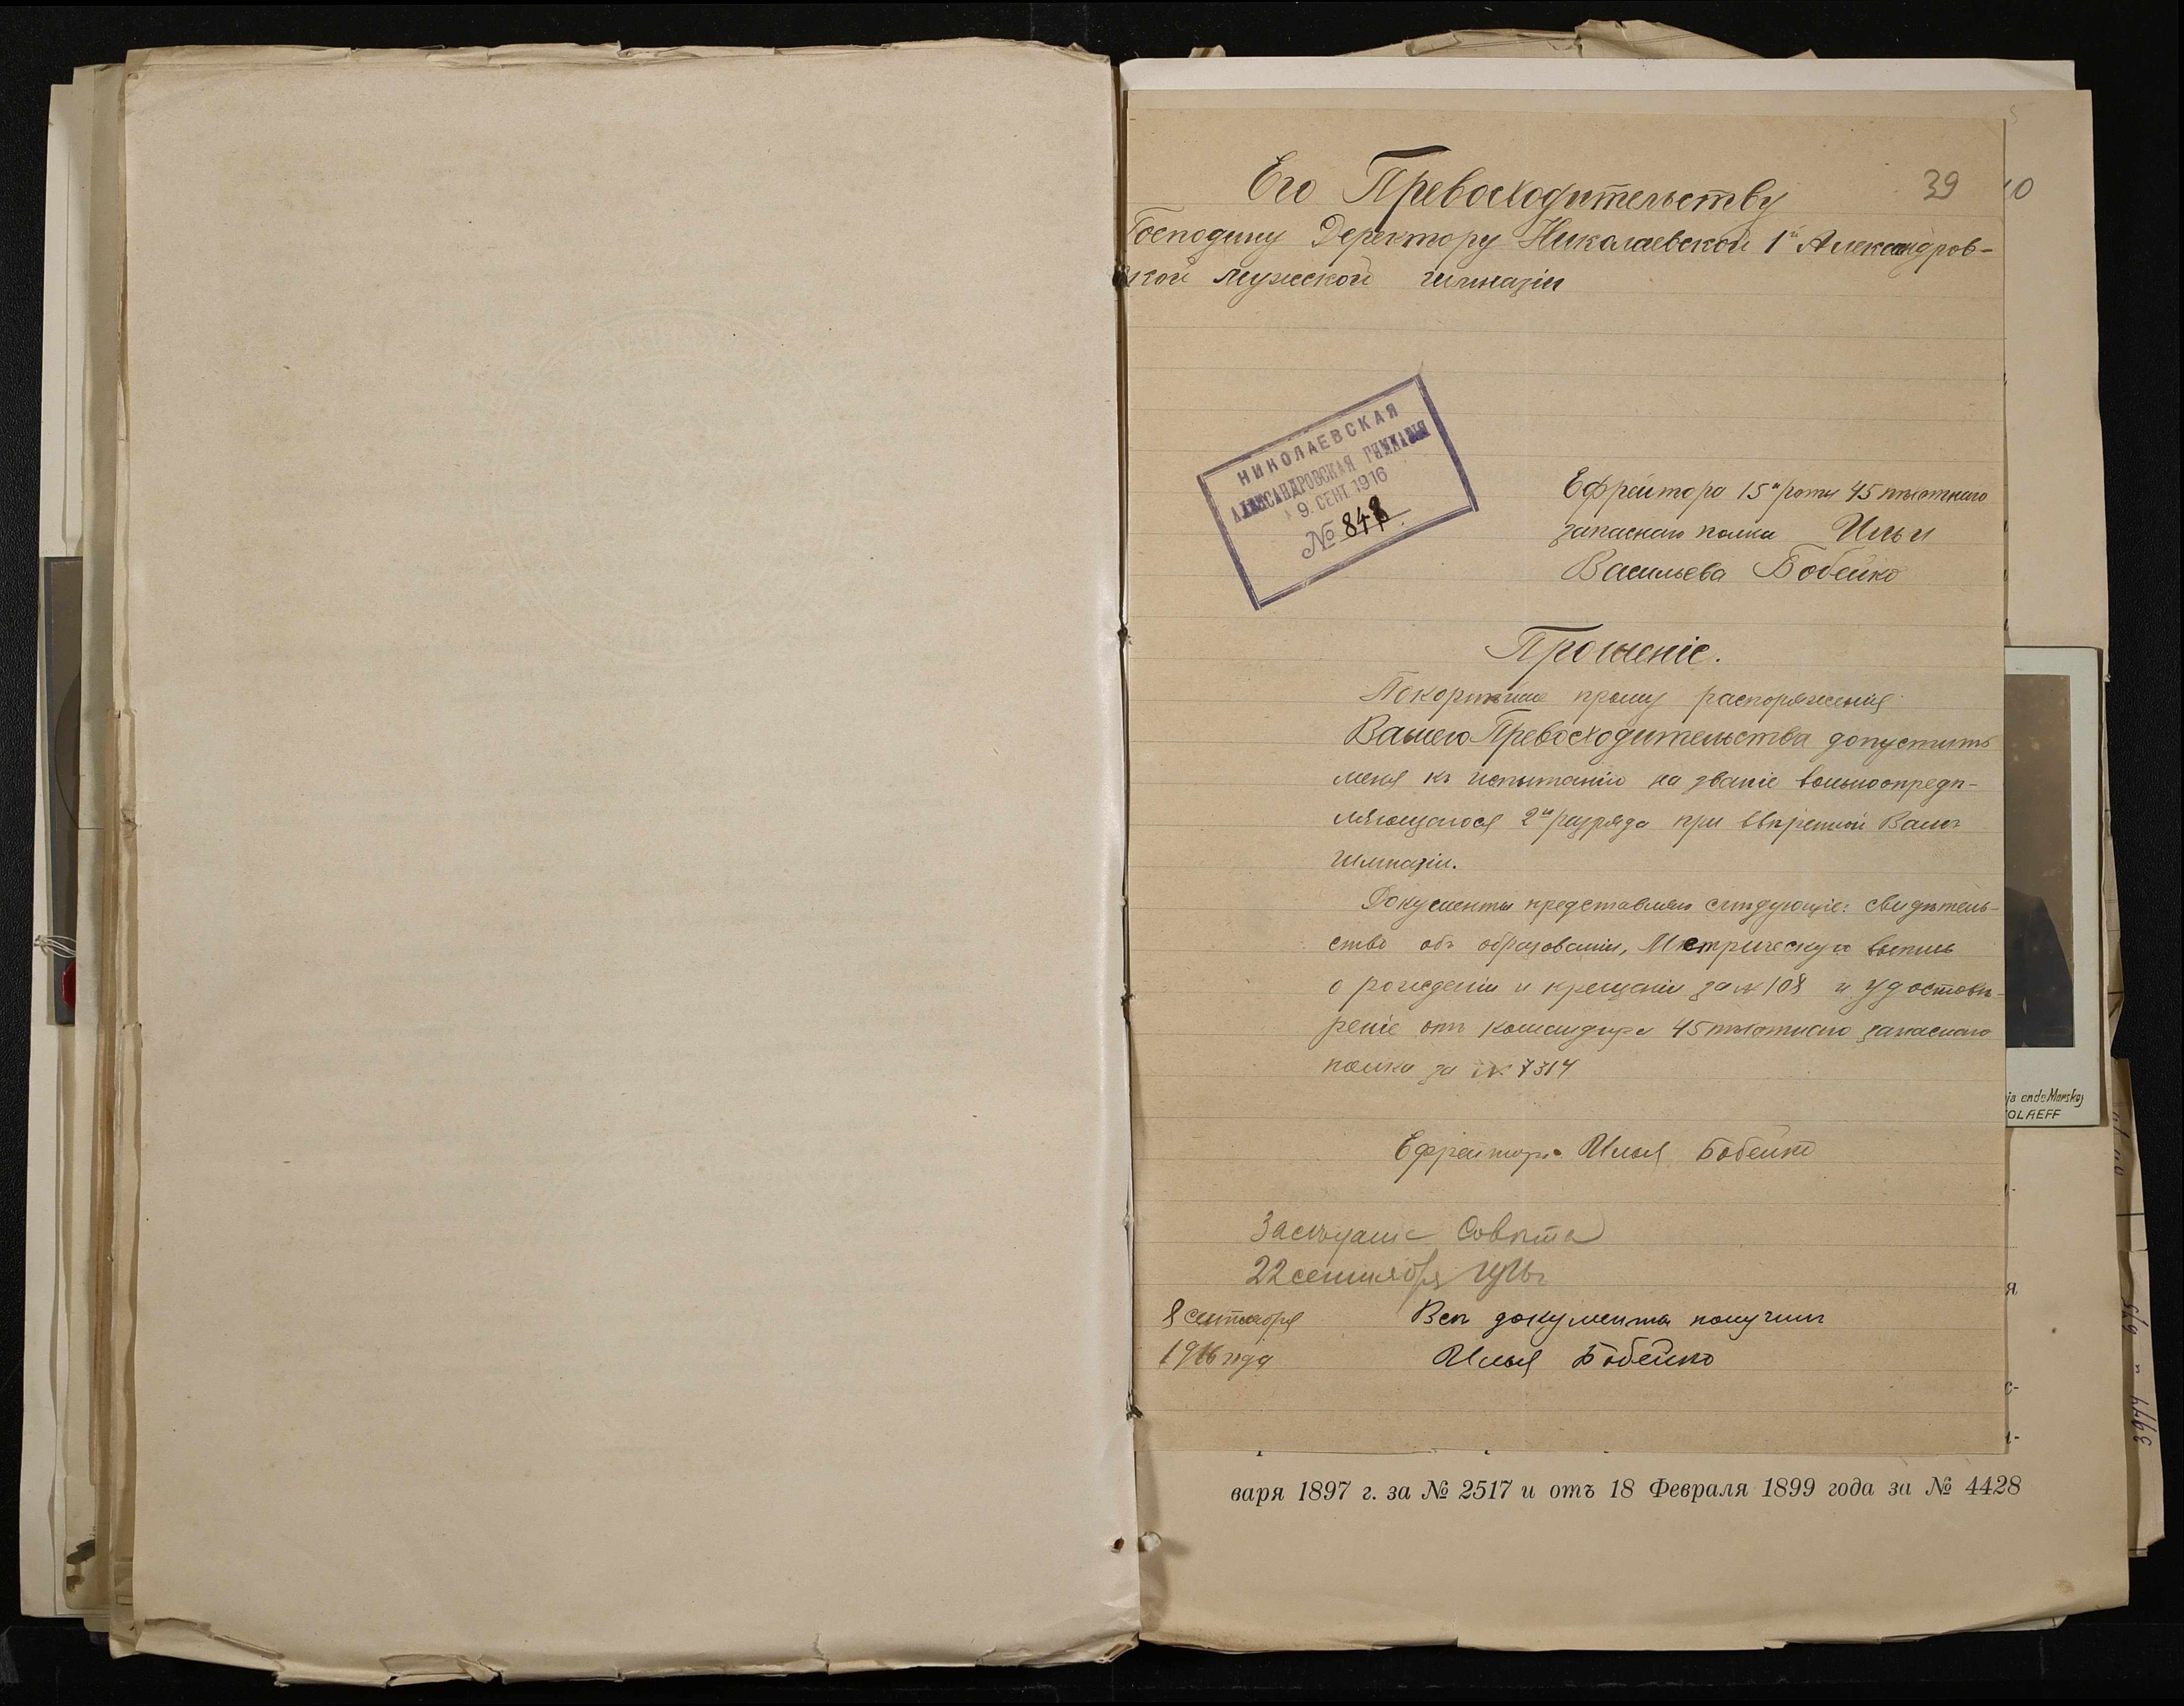 39
Его Превосходительству
Господину Деректору Николаевской 1й Александров-
ской мужской гимназіи
НИКОЛАЕВСКАЯ
АЛЕКСАНДРОВСКАЯ ГИМНАЗІЯ
9. СЕНТ. 1916
№ 848
Ефрейтора 15й роты 45 пѣхотнаго
запаснаго полка Ильи
Васильева Бобейко
Прошеніе.
Покорнѣйше прошу распоряженія
Вашего Превосходительства допустить
меня къ испытанію на званіе вольноопредѣ-
ляющагося 2го разряда при ввѣренной Вамъ
гимназіи.
Документы представляю слѣдующіе: свидѣтель-
ство объ образованіи, Метрическую выпись
о рожденіи и крещеніи за № 108 и удостовѣ-
реніе отъ командира 45 пѣхотнаго запаснаго
полка за № 7314
Ефрейторъ Илья Бобейко
Засѣданіе Совѣта
22 сентября 1916 г.
8 сентября
1916 года
Всѣ документы получилъ
Илья Бобейко
варя 1897 г. за № 2517 и отъ 18 Февраля 1899 года за № 4428
ja ende Morskoj
OLAEFF